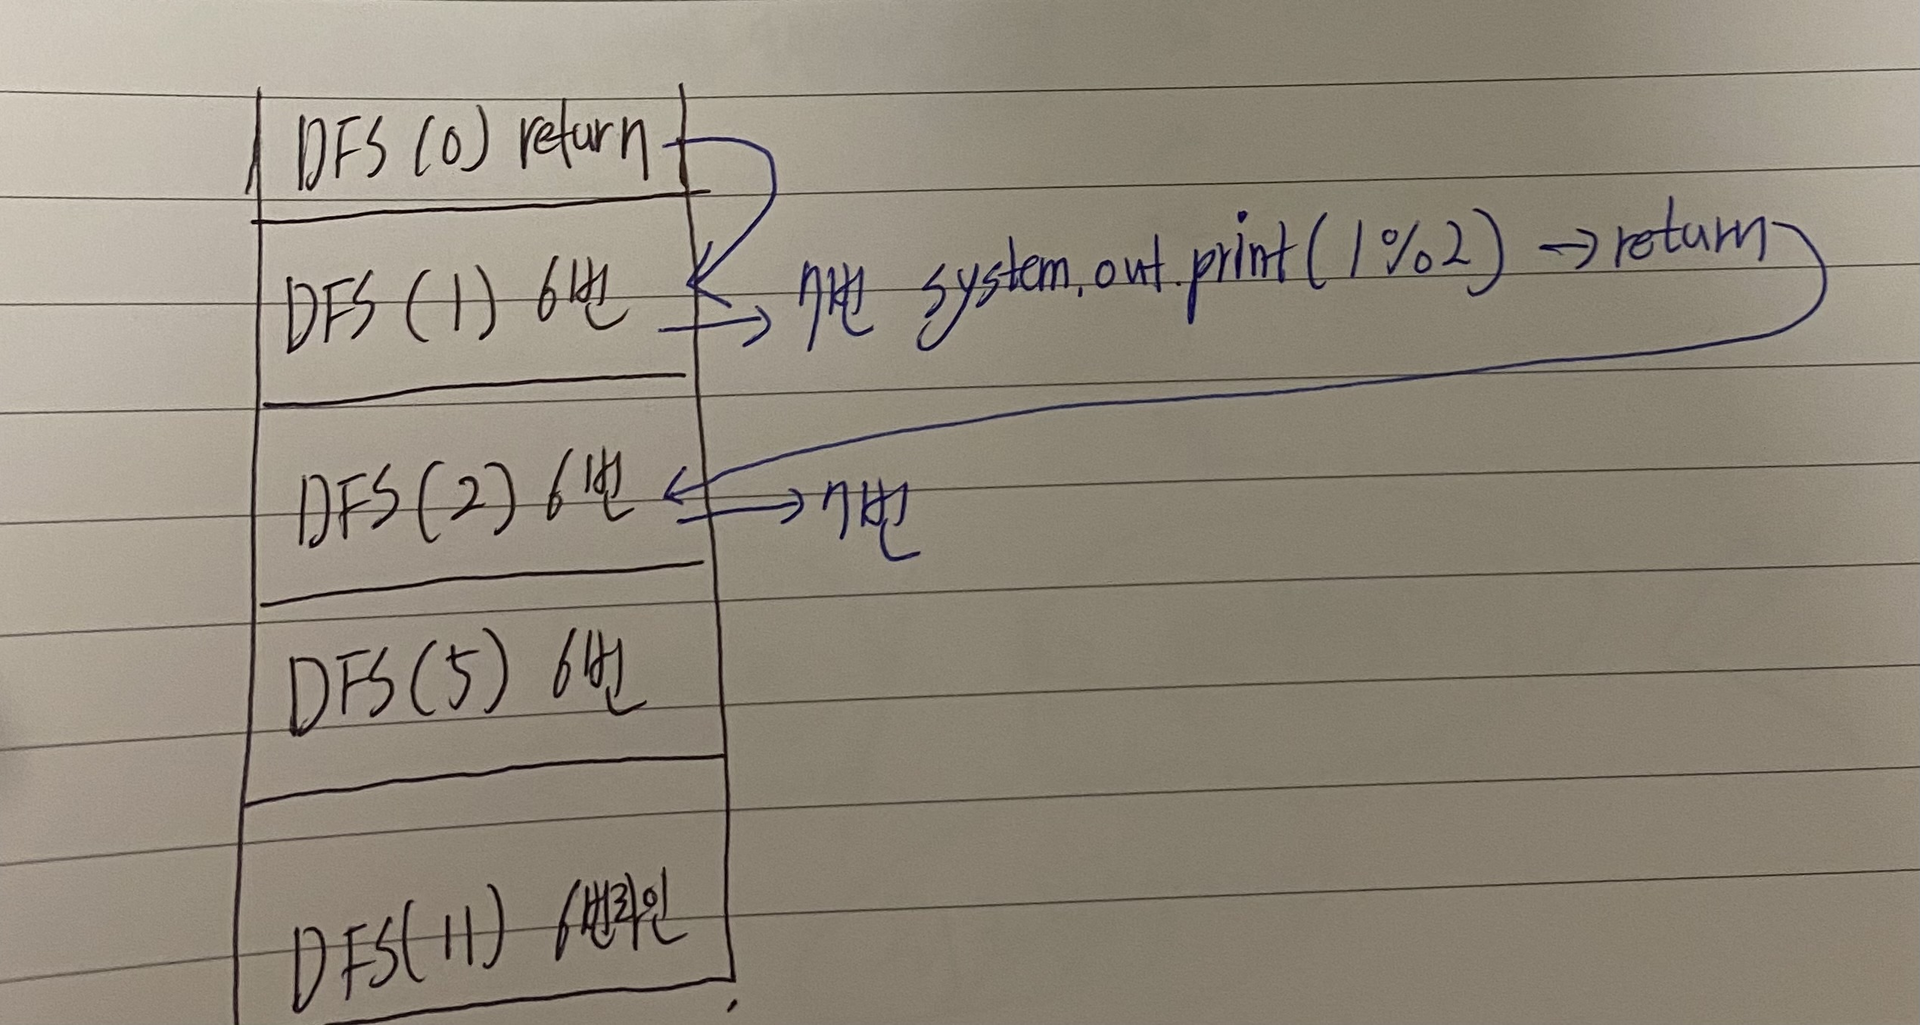 DFS(0) return
DFS(1) 6번 → 7번 system.out.print(1%2) → return
DFS(2) 6번 → 7번
DFS(5) 6번
DFS(11) 6번라인